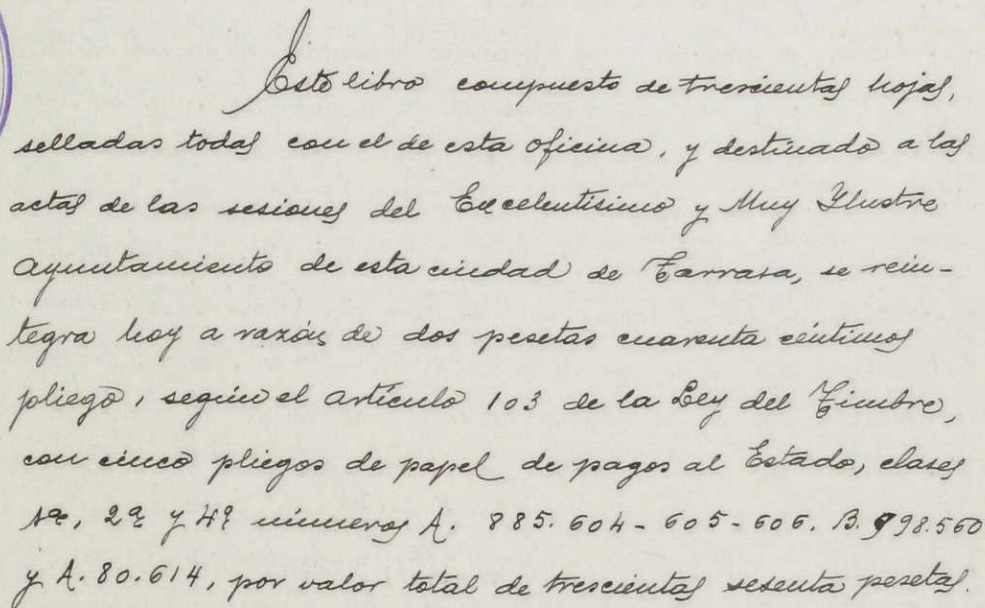 Este libro compuesto de trescientas hojas,
selladas todas con el de esta oficina, y destinado a las
actas de las sesiones del Excelentísimo y Muy Ilustre
Ayuntamiento de esta ciudad de Tarrasa, se rein-
tegra hoy a razón de dos pesetas cuarenta céntimos
pliego, según el artículo 103 de la Ley del Timbre,
con cinco pliegos de papel de pagos al Estado, clases
1ª, 2ª y 4ª números A. 885.604-605-606. B. 998.560
y A. 80.614, por valor total de trescientas sesenta pesetas.